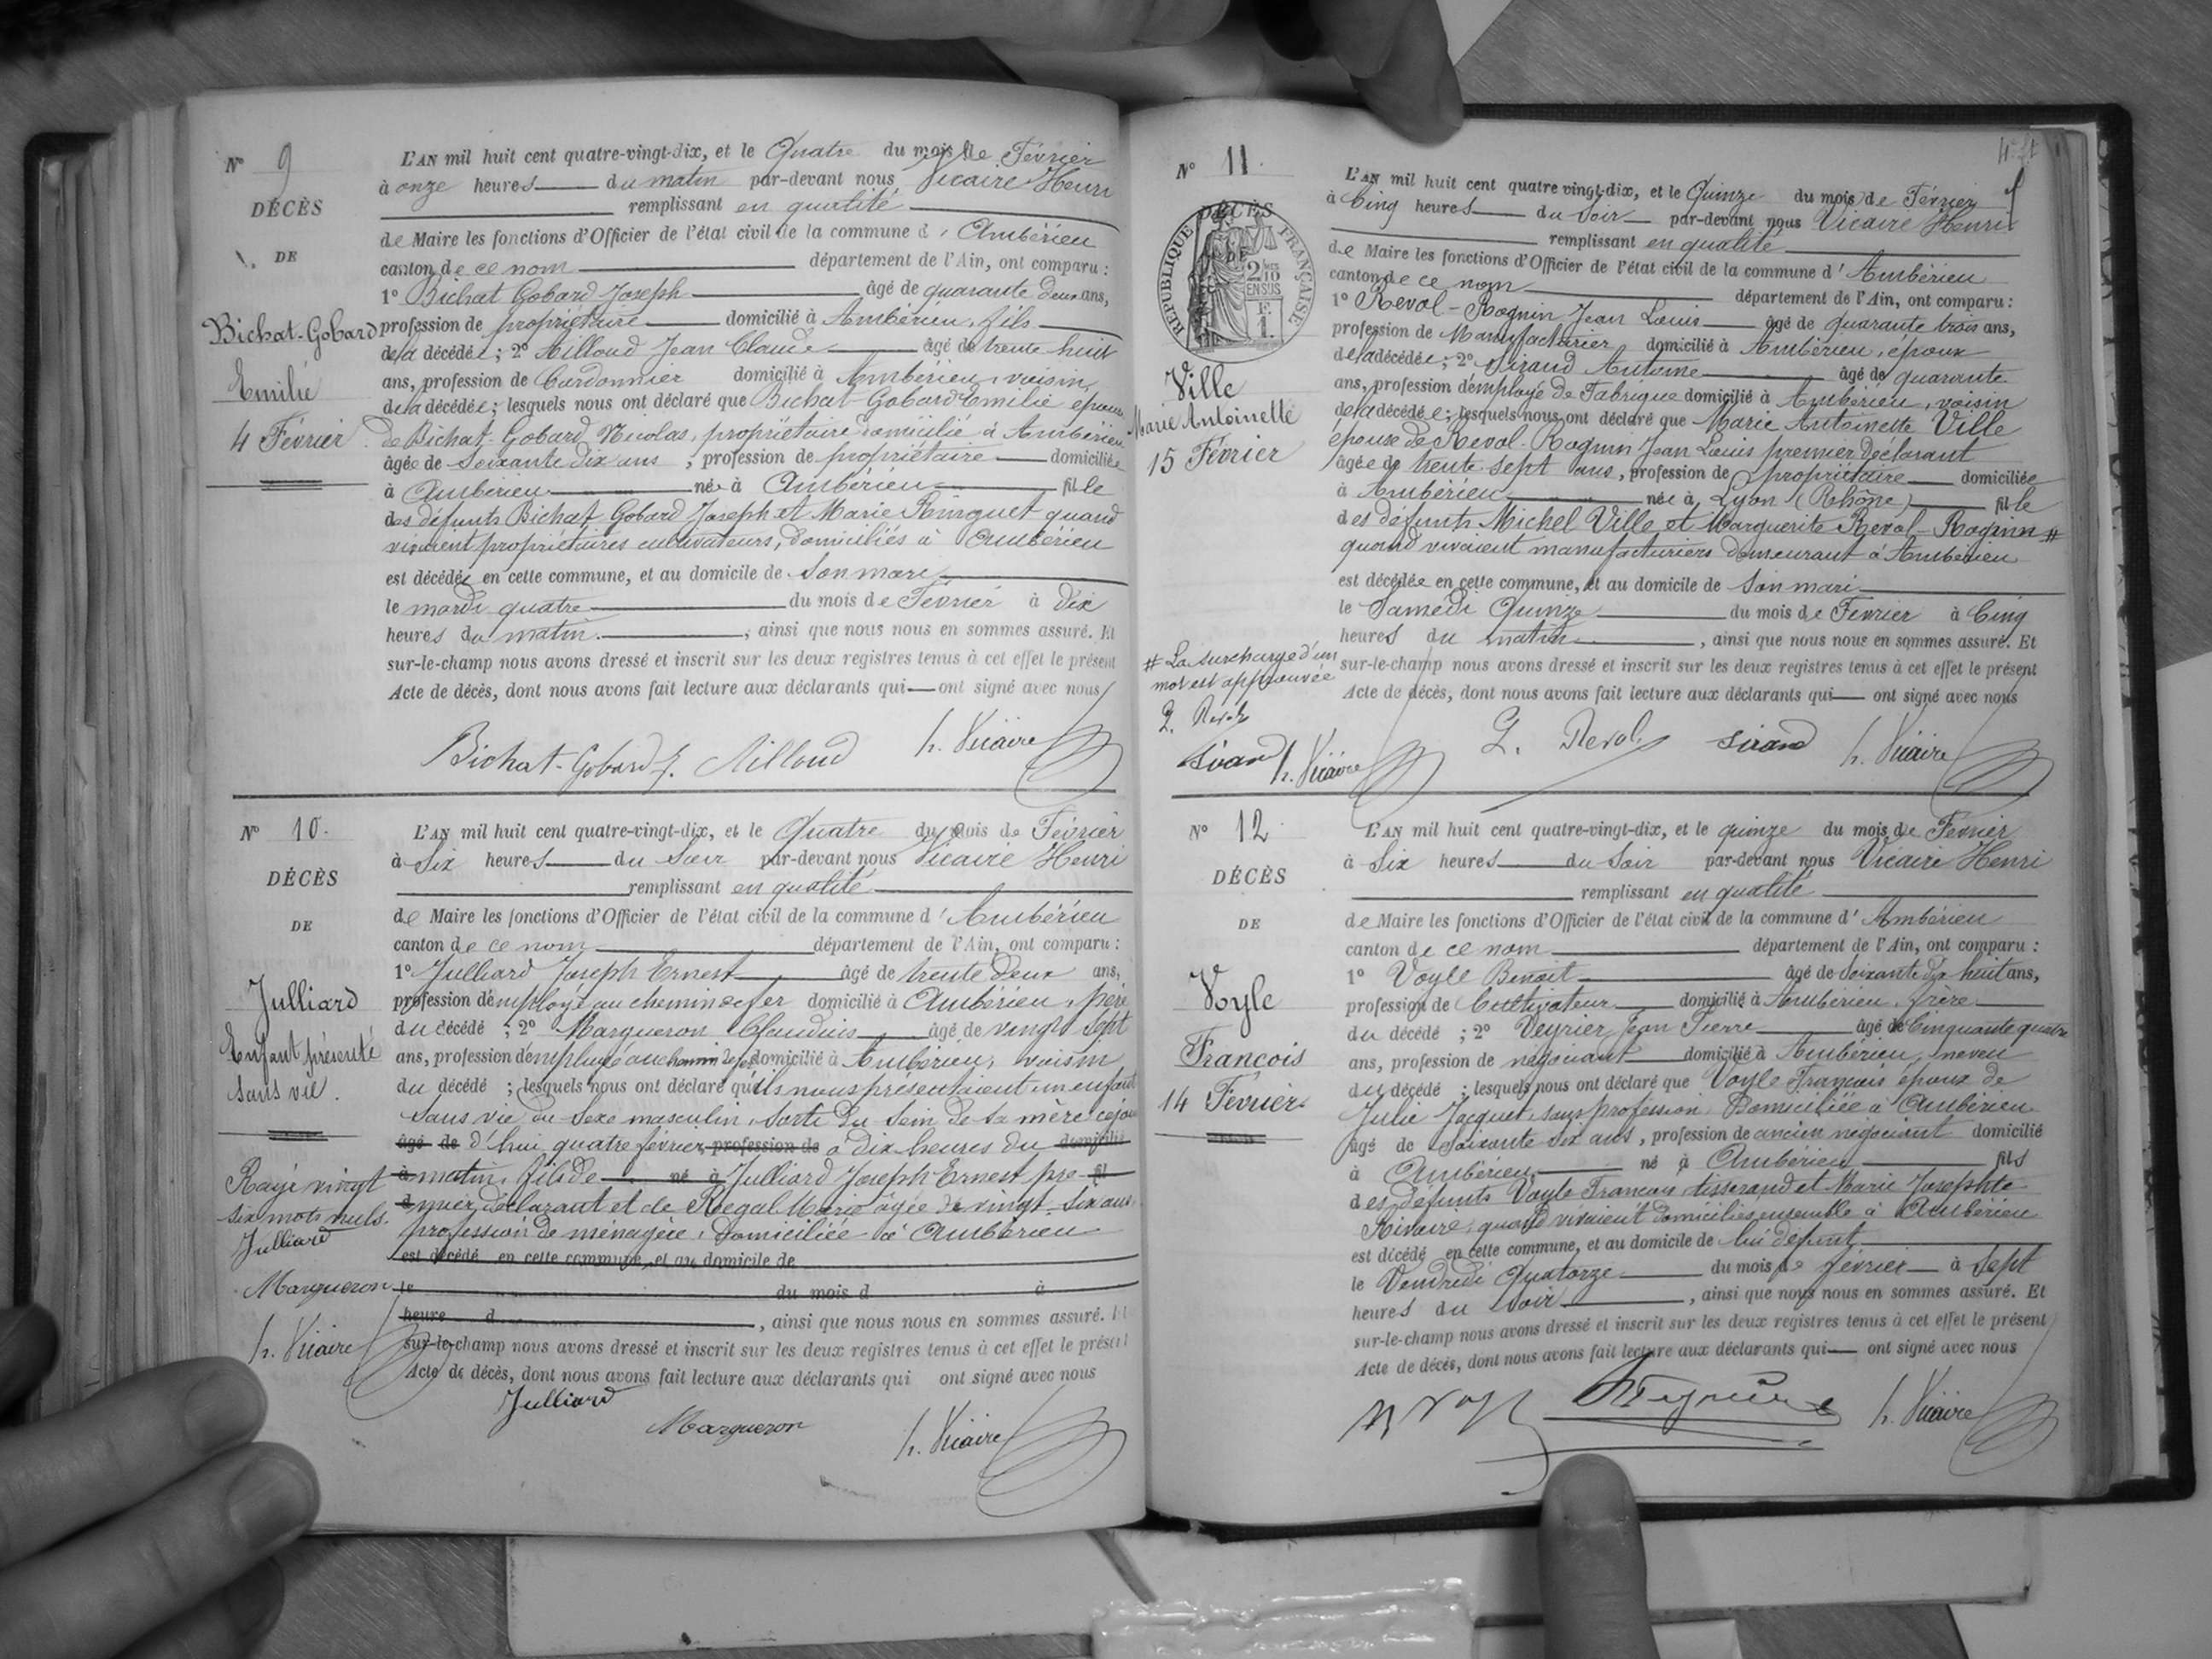 N° 9
DÉCÈS
DE
Bichat-Gobard
Emilie
4 Février
L'AN mil huit cent quatre-vingt-dix, et le Quatre du mois de Février
à onze heures du matin par-devant nous Vicaire Henri
remplissant en qualité
de Maire les fonctions d'Officier de l'état civil de la commune d'Ambérieu
canton de ce nom département de l'Ain, ont comparu :
1° Bichat Gobard Joseph âgé de quarante deux ans,
profession de propriétaire domicilié à Ambérieu, fils
de la décédée ; 2° Milloud Jean Claude âgé de trente-huit
ans, profession de Cordonnier domicilié à Ambérieu, voisin
de la décédée ; lesquels nous ont déclaré que Bichat-Gobard Emilie épouse
de Bichat-Gobard Nicolas, propriétaire domicilié à Ambérieu
âgée de soixante dix ans, profession de propriétaire domiciliée
à Ambérieu née à Ambérieu fille
des défunts Bichat Gobard Joseph et Marie Ringuet quand
vivaient propriétaires cultivateurs, domiciliés à Ambérieu
est décédée en cette commune, et au domicile de son mari
le mardi quatre du mois de Février à dix
heures du matin, ainsi que nous nous en sommes assuré. Et
sur-le-champ nous avons dressé et inscrit sur les deux registres tenus à cet effet le présent
Acte de décès, dont nous avons fait lecture aux déclarants qui ont signé avec nous
Bichat-Gobard J. Milloud h. Vicaire
N° 10.
DÉCÈS
DE
Julliard
Enfant présenté
sans vie.
Rayé vingt
six mots nuls.
Julliard
Margueron
h. Vicaire
L'AN mil huit cent quatre-vingt-dix, et le Quatre du mois de Février
à Six heures du Soir par-devant nous Vicaire Henri
remplissant en qualité
de Maire les fonctions d'Officier de l'état civil de la commune d'Ambérieu
canton de ce nom département de l'Ain, ont comparu :
1° Julliard Joseph Ernest âgé de trente deux ans,
profession d'employé au chemin de fer domicilié à Ambérieu, père
du décédé ; 2° Margueron Claudius âgé de vingt-sept
ans, profession d'employé au chemin de fer domicilié à Ambérieu, voisin
du décédé ; lesquels nous ont déclaré qu'ils nous présentaient un enfant
sans vie du sexe masculin, sorti du sein de sa mère cejour
âgé de d'hui quatre février, profession de à dix heures du domicilié
à matin, fils de né à Julliard Joseph Ernest pre- fil
d mier déclarant et de Regal Marie âgée de vingt-six ans
profession de ménagère, domiciliée à Ambérieu
est décédé en cette commune, et au domicile de
le du mois d à
heure d , ainsi que nous nous en sommes assuré. Et
sur-le-champ nous avons dressé et inscrit sur les deux registres tenus à cet effet le présent
Acte de décès, dont nous avons fait lecture aux déclarants qui ont signé avec nous
Julliard
Margueron
h. Vicaire
N° 11.
DÉCÈS
DE
RÉPUBLIQUE FRANÇAISE
2/10 EN SUS
F. 1.
Ville
Marie Antoinette
15 Février
# La surcharge d'un
mot est approuvée
L. Revol
Sirand h. Vicaire
L'AN mil huit cent quatre vingt-dix, et le Quinze du mois de Février
à Cinq heures du Soir par-devant nous Vicaire Henri
remplissant en qualité
de Maire les fonctions d'Officier de l'état civil de la commune d'Ambérieu
canton de ce nom département de l'Ain, ont comparu :
1° Revol-Rognin Jean Louis âgé de quarante trois ans,
profession de Manufacturier domicilié à Ambérieu, époux
de la décédée ; 2° Sirand Antoine âgé de quarante
ans, profession d'employé de Fabrique domicilié à Ambérieu, voisin
de la décédée ; lesquels nous ont déclaré que Marie Antoinette Ville
épouse de Revol-Rognin Jean Louis premier déclarant
âgée de trente-sept ans, profession de propriétaire domiciliée
à Ambérieu née à Lyon (Rhône) fille
des défunts Michel Ville et Marguerite Revol-Rognin #
quand vivaient manufacturiers demeurant à Ambérieu
est décédée en cette commune, et au domicile de son mari
le Samedi Quinze du mois de Février à Cinq
heures du matin, ainsi que nous nous en sommes assuré. Et
sur-le-champ nous avons dressé et inscrit sur les deux registres tenus à cet effet le présent
Acte de décès, dont nous avons fait lecture aux déclarants qui ont signé avec nous
L. Revol Sirand h. Vicaire
N° 12
DÉCÈS
DE
Voyle
François
14 Février
L'AN mil huit cent quatre-vingt-dix, et le quinze du mois de Février
à Six heures du Soir par-devant nous Vicaire Henri
remplissant en qualité
de Maire les fonctions d'Officier de l'état civil de la commune d'Ambérieu
canton de ce nom département de l'Ain, ont comparu :
1° Voyle Benoit âgé de soixante dix huit ans,
profession de Cultivateur domicilié à Ambérieu, frère
du décédé ; 2° Veyrier Jean Pierre âgé de Cinquante quatre
ans, profession de négociant domicilié à Ambérieu, neveu
du décédé ; lesquels nous ont déclaré que Voyle François époux de
Julie Jacquet, sans profession Domiciliée à Ambérieu
âgé de soixante six ans, profession de ancien négociant domicilié
à Ambérieu né à Ambérieu fils
des défunts Voyle François tisserand et Marie Josephte
Rivoire, quand vivaient domiciliés ensemble à Ambérieu
est décédé en cette commune, et au domicile de lui défunt
le Vendredi Quatorze du mois de février à Sept
heures du soir, ainsi que nous nous en sommes assuré. Et
sur-le-champ nous avons dressé et inscrit sur les deux registres tenus à cet effet le présent
Acte de décès, dont nous avons fait lecture aux déclarants qui ont signé avec nous
h. Vicaire